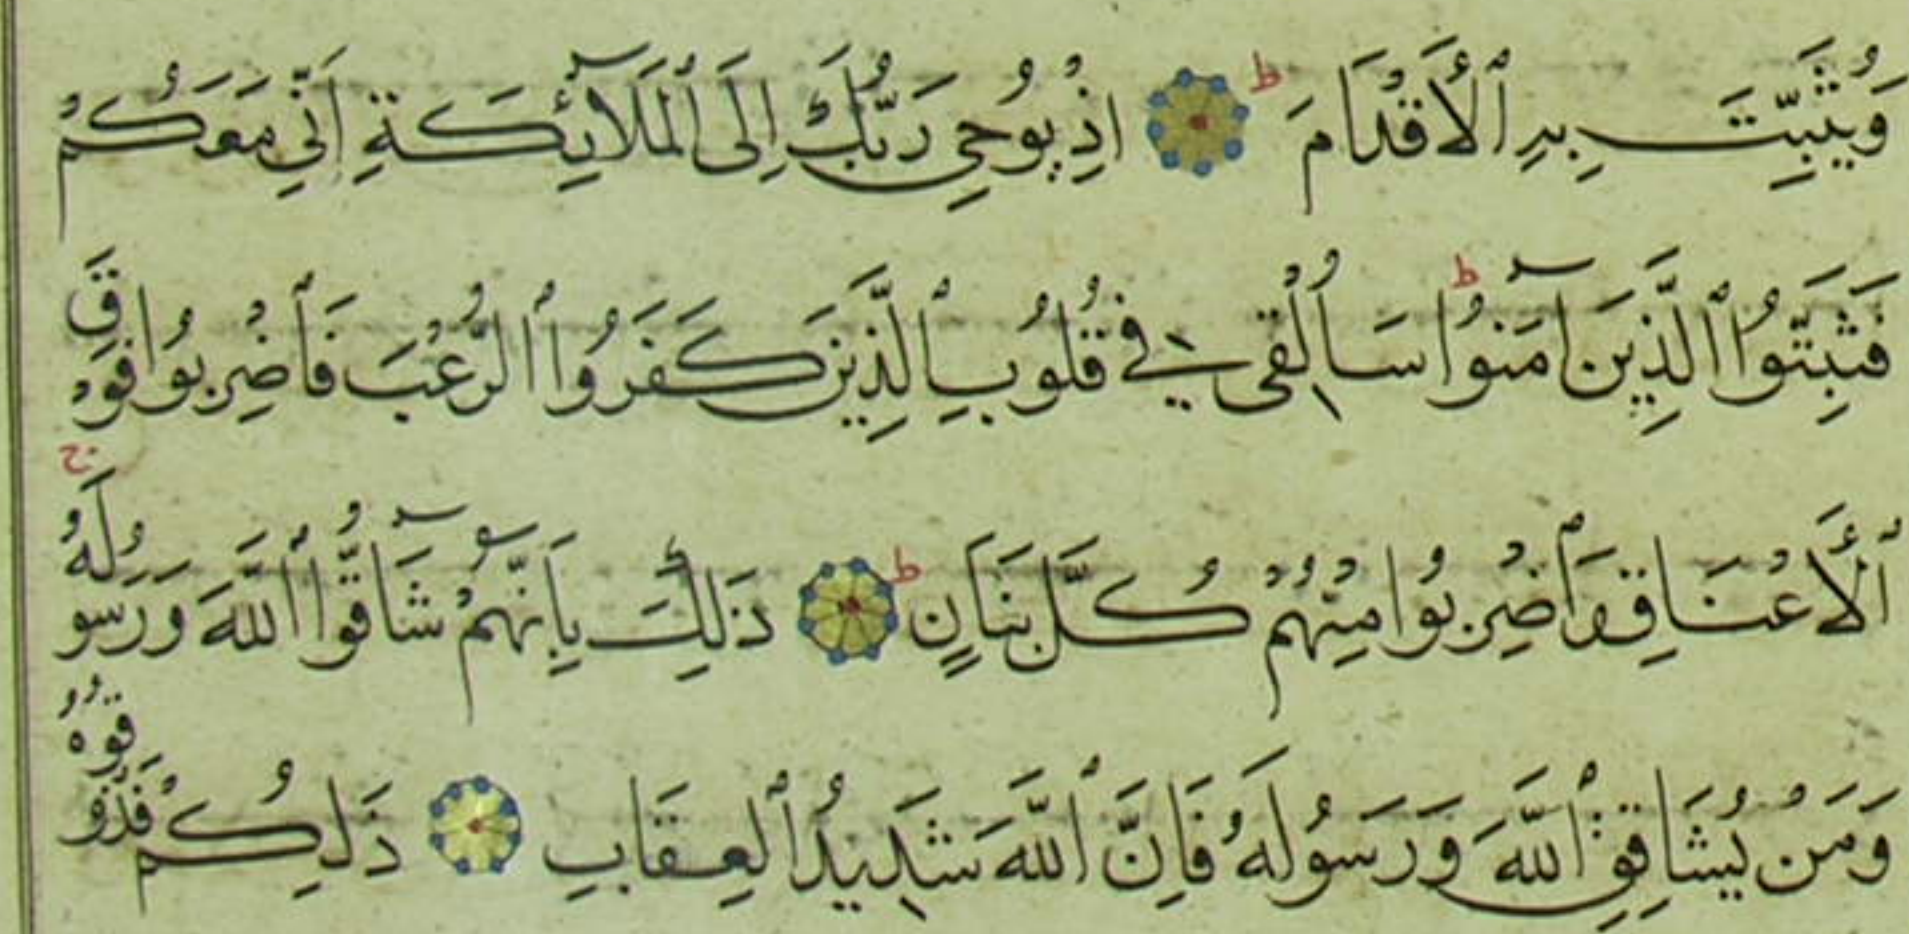 وَيُثَبِّتَ بِهِ ٱلْأَقْدَامَ ط اِذْ يُوحِي رَبُّكَ اِلَى ٱلْمَلَآئِكَةِ اَنِّي مَعَكُمْ
فَثَبِّتُوا ٱلَّذِينَ آمَنُوا ط سَاُلْقِي فِي قُلُوبِ ٱلَّذِينَ كَفَرُوا ٱلرُّعْبَ فَٱضْرِبُوا فَوْقَ
ٱلْأَعْنَاقِ وَٱضْرِبُوا مِنْهُمْ كُلَّ بَنَانٍ ط ذَلِكَ بِاَنَّهُمْ شَآقُّوا ٱللَّهَ وَرَسُولَهُ ج
وَمَنْ يُشَاقِقِ ٱللَّهَ وَرَسُولَهُ فَاِنَّ ٱللَّهَ شَدِيدُ ٱلْعِقَابِ ذَلِكُمْ فَذُوقُوهُ